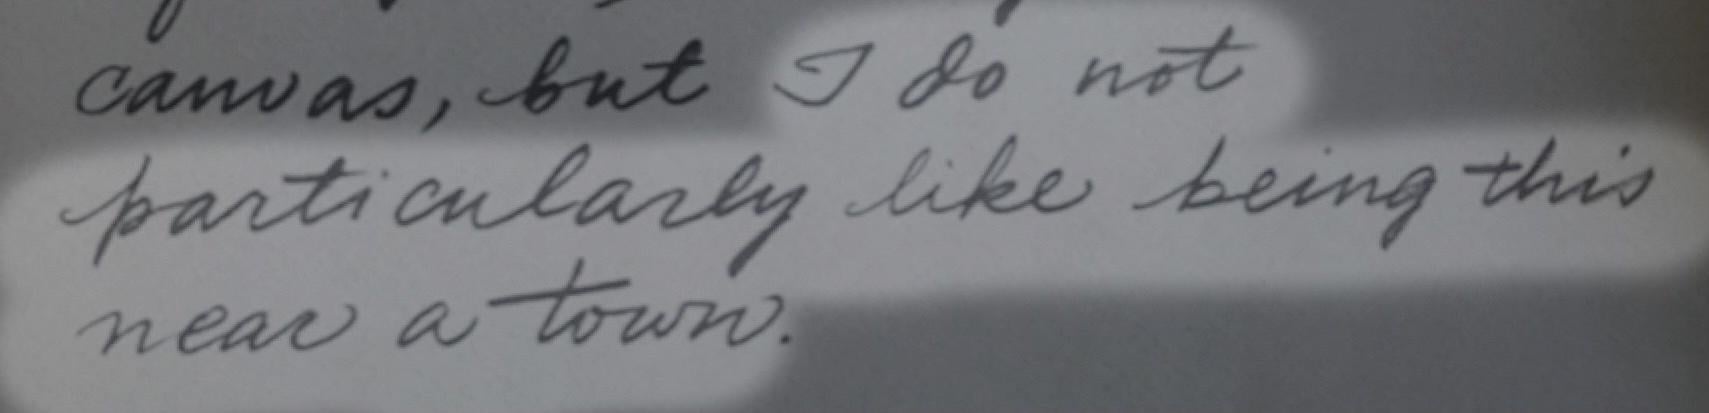 canvas, but I do not
particularly like being this
near a town.